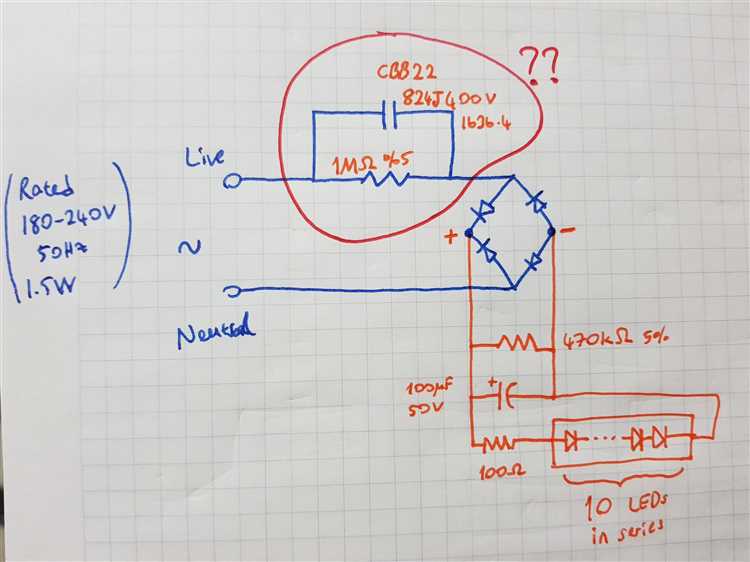 ??
CBB22
824J400V
1636.4
1MΩ %5
Live
(Rated
180-240V
50Hz
1.5W)
~
Neutral
+
-
470kΩ 5%
100µF
50V
+
100Ω
10 LEDs
in series